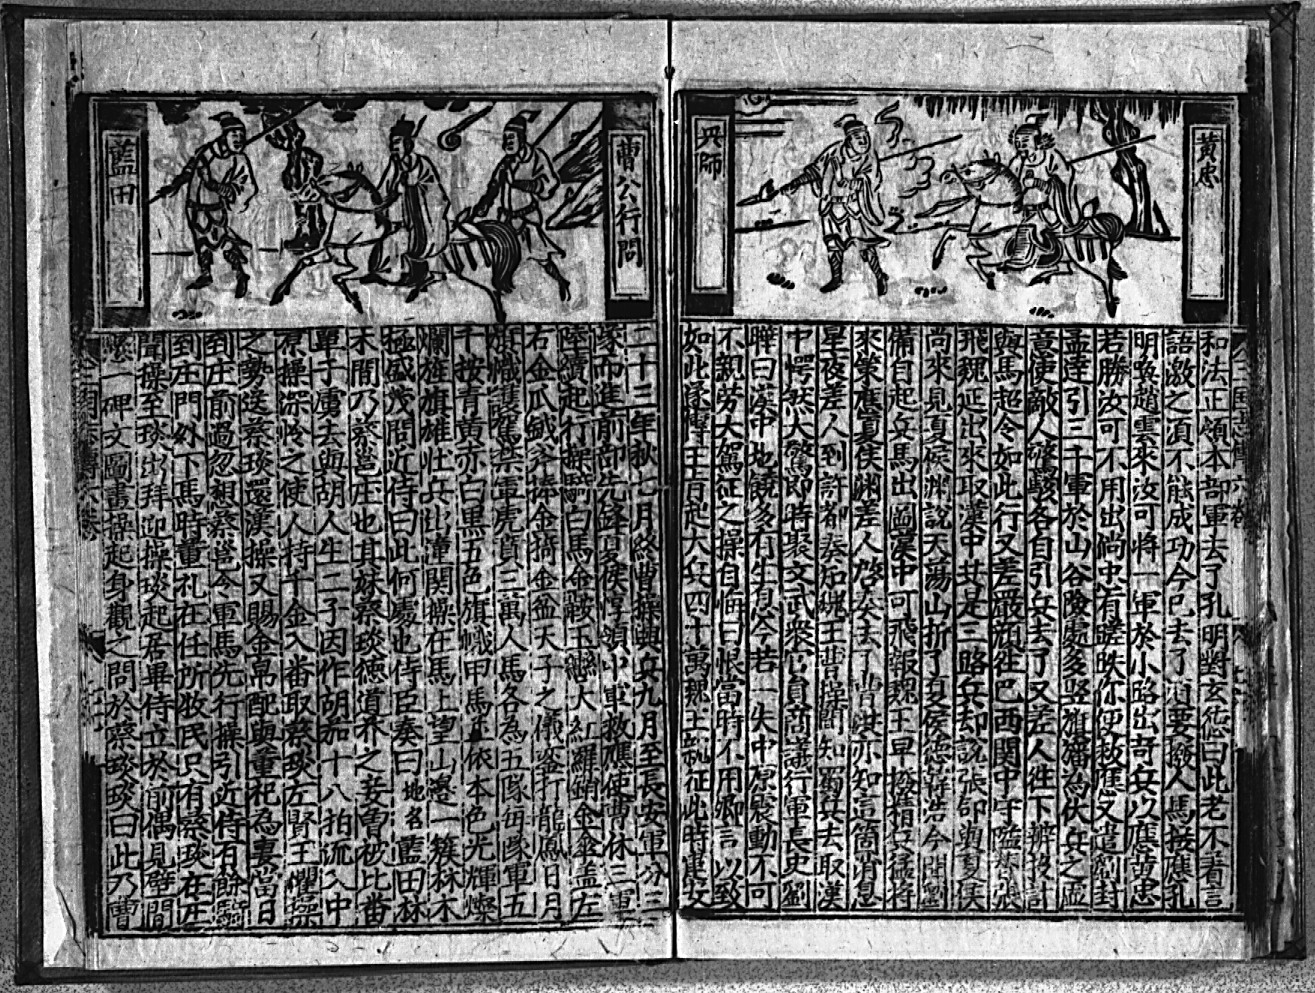 黃忠
興師
和法正領本部軍去了孔明對玄德曰此老不着言
語激之湏不能成功今已去了須要撥人馬接應孔
明喚趙雲來汝可將一軍於小路出奇兵以應黃忠
若勝汝可不用出倘忠有蹉跌你便救應又遣劉封
孟達引三千軍於山谷險處多竪旗旛為伏兵之虛
意使敵人驚駭各自引兵去了又差人徃下辨授計
與馬超令如此行又差嚴顏徃巴西閬中守隘替張
飛魏延出來取漢中共是三路兵却說張郃與夏侯
尚來見夏侯淵說天蕩山折了夏侯德韓浩今聞劉
備自起兵馬出圖漢中可飛報魏王早撥精兵猛將
來策應夏侯淵差人啓奏去了曹洪亦知這箇消息
星夜差人到許都奏知魏王曹操聞知蜀兵去取漢
中愕然大驚即時聚文武衆官員商議行軍長史劉
曄曰漢中地饒多有生息今若一失中原震動不可
不親勞大駕征之操自悔曰恨當時不用卿言以致
如此遂傳王旨起大兵四十萬魏王親征此時建安
曹公行問
藍田
二十三年秋七月終曹操興兵九月至長安軍分三
隊而進前部先鋒夏侯惇領中軍救應使曹休三軍
陸續起行操騎白馬金鞍玉轡大紅羅銷金傘盖左
右金瓜鉞斧捧金擶金盔天子之儀鑾打龍鳳日月
旌幟護駕禁軍虎賁三萬人馬各為五隊每隊軍五
千按青黃赤白黑五色旗幟甲馬並依本色光輝燦
爛旌旗雄壯兵出潼關操在馬上望山邊一簇林木
極盛茂問近侍曰此何處也侍臣奏曰地名藍田林
木間乃蔡邕庄也其妹蔡琰德道界之妾曾被北番
單于虜去與胡人生二子因作胡笳十八拍流入中
原操深怜之使人持千金入番取蔡琰左賢王懼操
之勢送蔡琰還漢操又賜金帛配與董祀為妻當日
到庄前過忽想蔡邕令軍馬先行操引近侍百餘騎
到庄門外下馬時董礼在任所牧民只有蔡琰在庄
聞操至琰出拜迎操琰起居畢侍立於前偶見壁間
懸一碑文圖畫操起身觀之問於蔡琰琰曰此乃曹